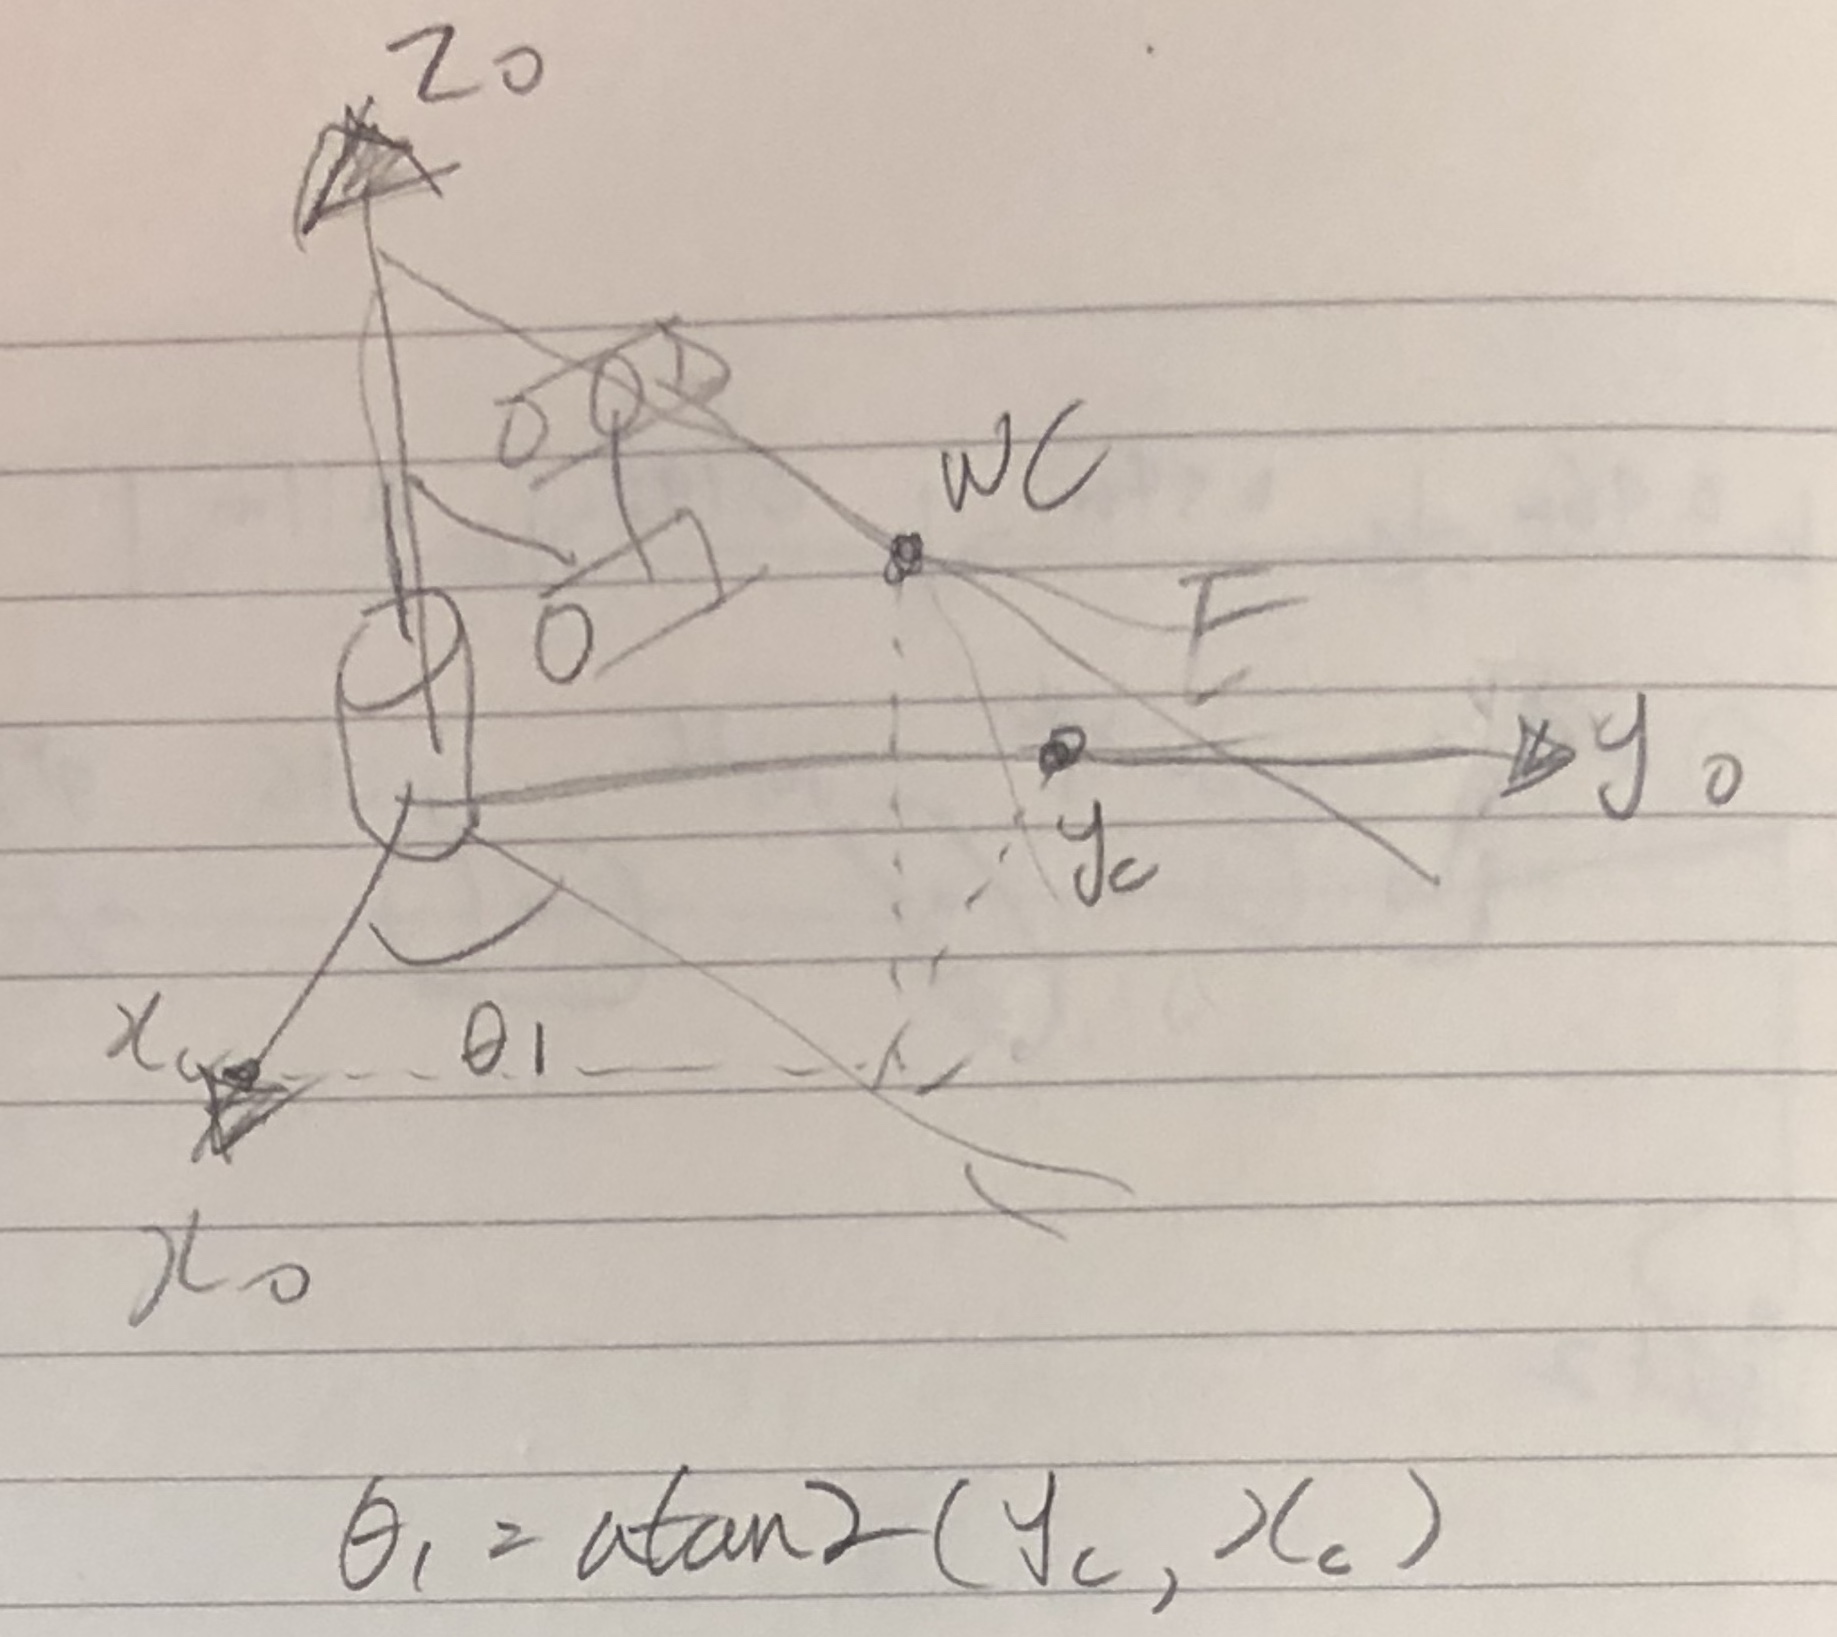 Z0
WC
y0
yc
xc
θ1
x0
θ1 = atan2(yc, xc)